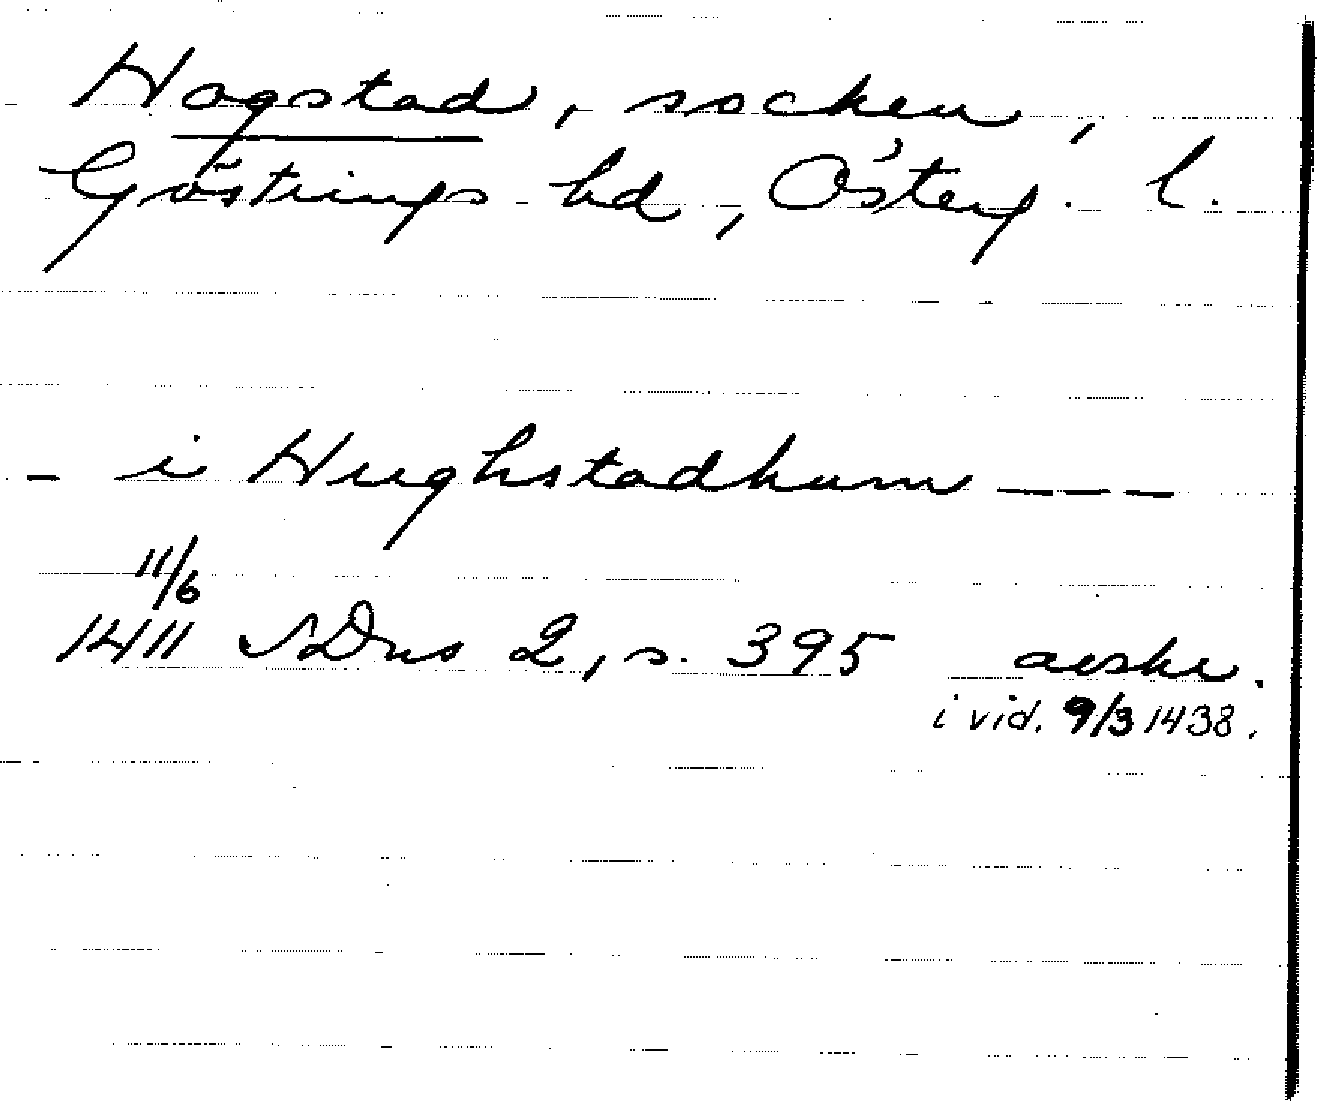 Hogstad, socken,
Göstrings hd, Österg. l.
- i Hughstadhum — — —
11/6
1411 SDns 2, s. 395 avskr.
i vid. 9/3 1438.